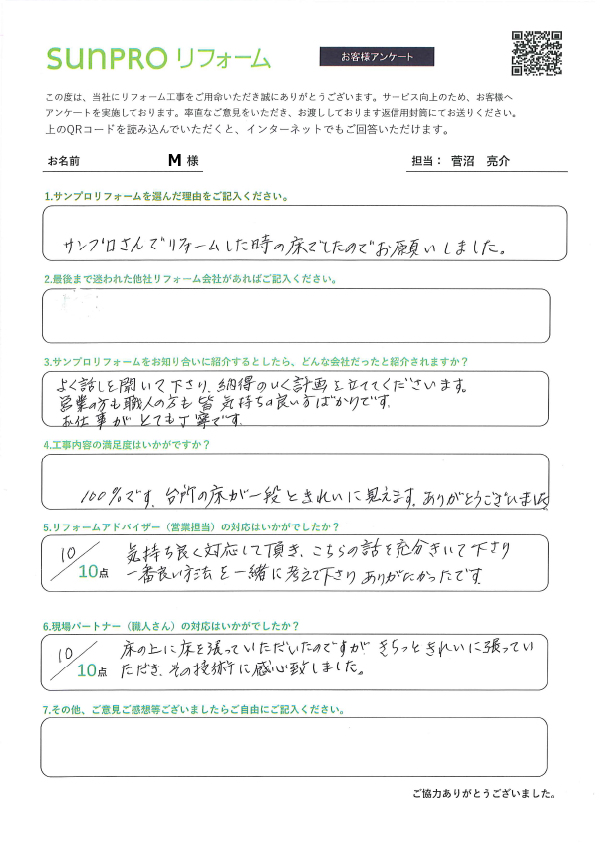 sunpro リフォーム
お客様アンケート
この度は、当社にリフォーム工事をご用命いただき誠にありがとうございます。サービス向上のため、お客様へ
アンケートを実施しております。率直なご意見をいただき、お渡ししております返信用封筒にてお送りください。
上のQRコードを読み込んでいただくと、インターネットでもご回答いただけます。
お名前 M 様 担当： 菅沼 亮介
1.サンプロリフォームを選んだ理由をご記入ください。
サンプロさんでリフォームした時の床でしたのでお願いしました。
2.最後まで迷われた他社リフォーム会社があればご記入ください。
3.サンプロリフォームをお知り合いに紹介するとしたら、どんな会社だったと紹介されますか？
よく話しを聞いて下さり、納得のいく計画を立ててくださいます。
営業の方も職人の方も皆気持ちの良い方ばかりです。
お仕事がとても丁寧です。
4.工事内容の満足度はいかがですか？
100%です。台所の床が一段ときれいに見えます。ありがとうございました
5.リフォームアドバイザー（営業担当）の対応はいかがでしたか？
10/10点
気持ち良く対応して頂き、こちらの話を充分きいて下さり
一番良い方法を一緒に考えて下さりありがたかったです。
6.現場パートナー（職人さん）の対応はいかがでしたか？
10/10点
床の上に床を張っていただいたのですが きちっときれいに張ってい
ただき、その技術に感心致しました。
7.その他、ご意見ご感想等ございましたらご自由にご記入ください。
ご協力ありがとうございました。